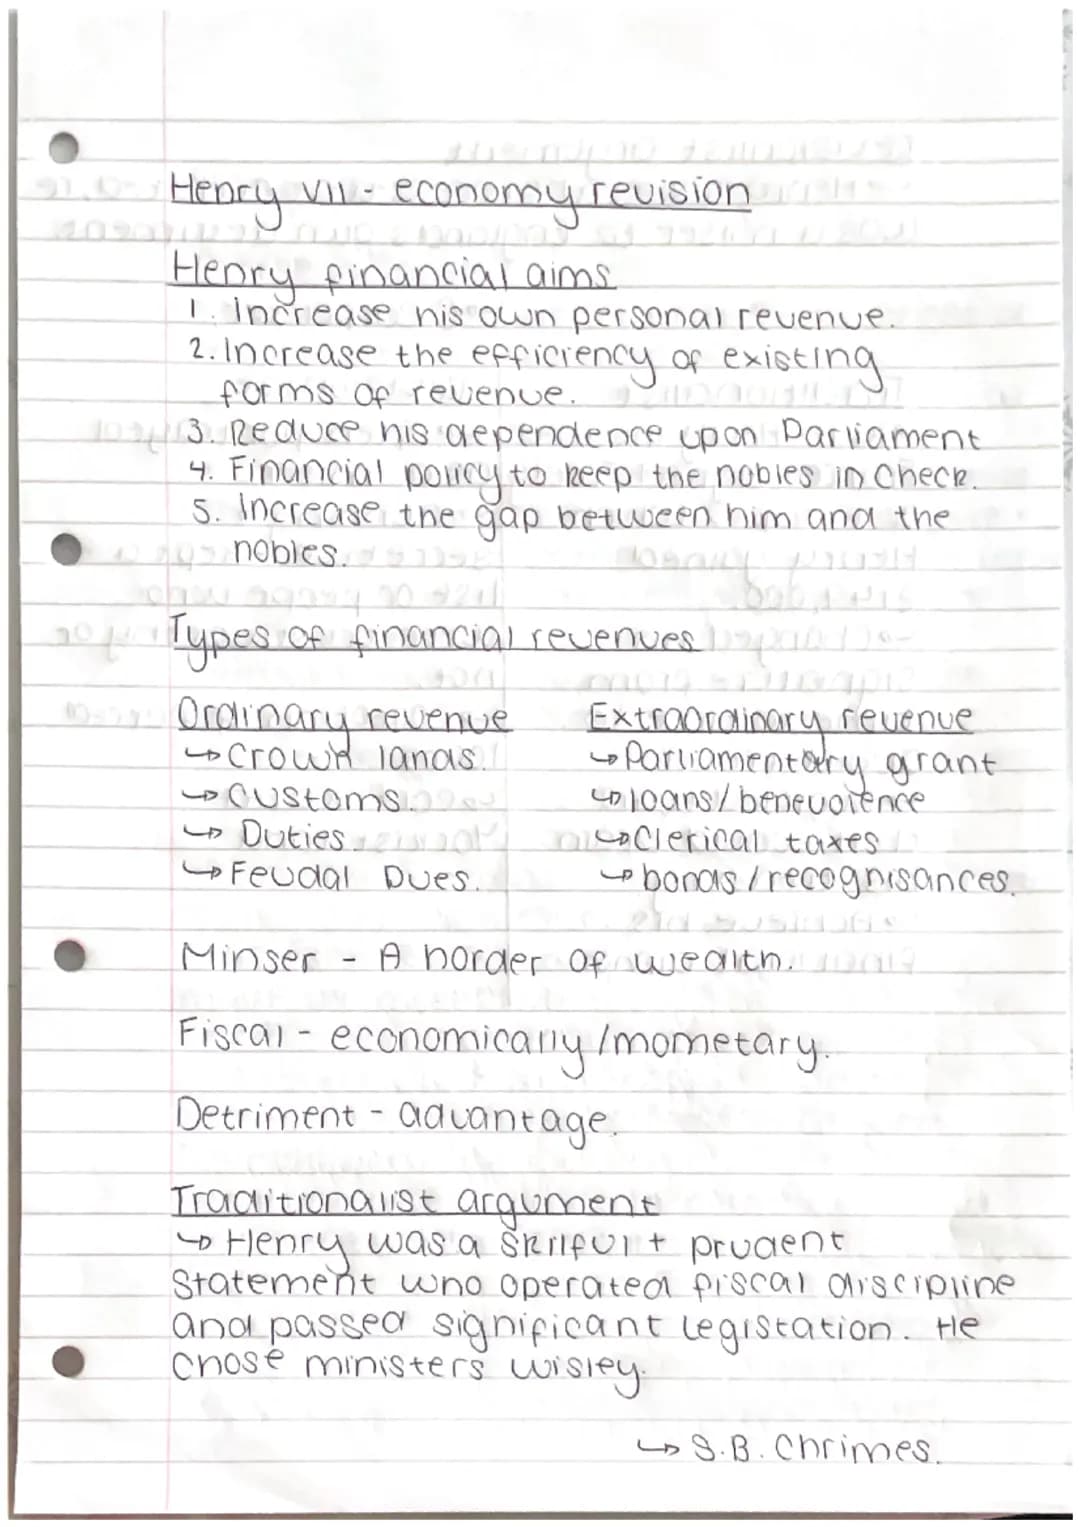 Henry VII - economy revision
Henry financial aims
1. Increase his own personal revenue.
2. Increase the efficiency of existing
forms of revenue.
3. Reduce his dependence upon Parliament
4. Financial policy to keep the nobles in check.
5. Increase the gap between him and the
nobles.
Types of financial revenues
Ordinary revenue
↳ Crown lands.
↳ Customs.
↳ Duties.
↳ Feudal Dues.
Extraordinary revenue
↳ Parliamentary grant
↳ loans/benevolence
↳ Clerical taxes
↳ bonds/recognisances.
Minser - A horder of wealth.
Fiscal - economically/mometary.
Detriment - advantage.
Traditionalist argument
↳ Henry was a skilful + prudent
Statement who operated fiscal discipline
and passed significant legistation. He
chose ministers wisley.
↳ S.B. Chrimes.